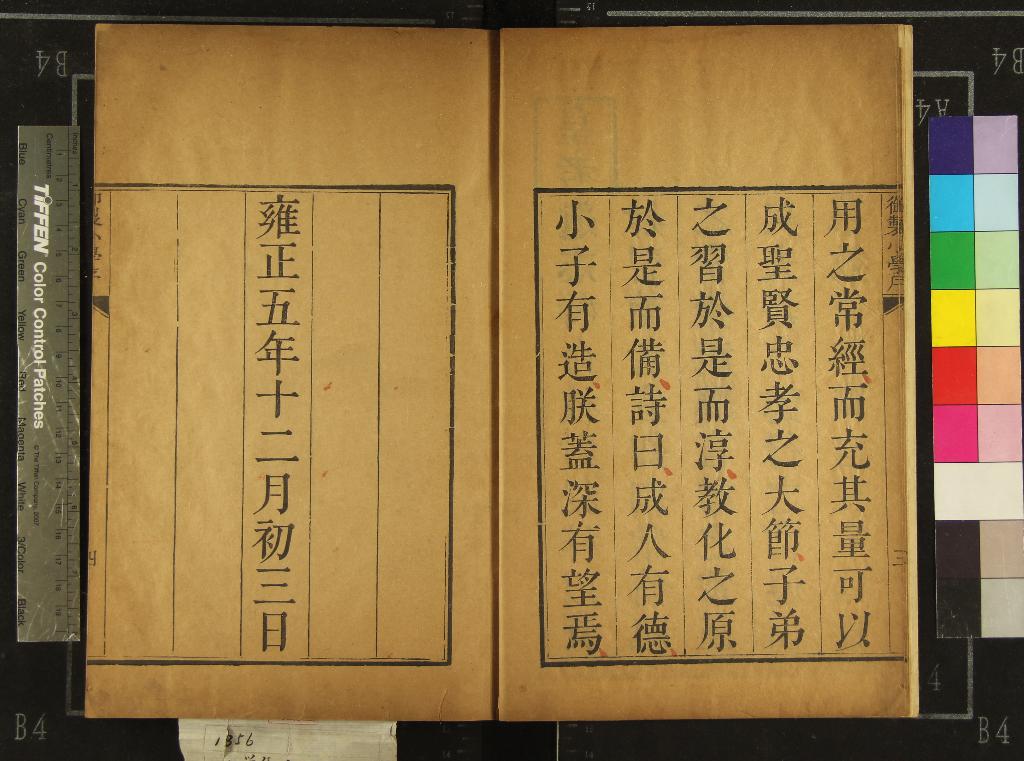 用之常經而充其量可以
成聖賢忠孝之大節子弟
之習於是而淳教化之原
於是而備詩曰成人有德
小子有造朕蓋深有望焉
雍正五年十二月初三日
御製小學序
三
四
1356
TIFFEN Color Control Patches
© The Tiffen Company, 2007
Centimetres
Inches
Blue
Cyan
Green
Yellow
Red
Magenta
White
3/Color
Black
B4
B4
B4
B4
A4
4